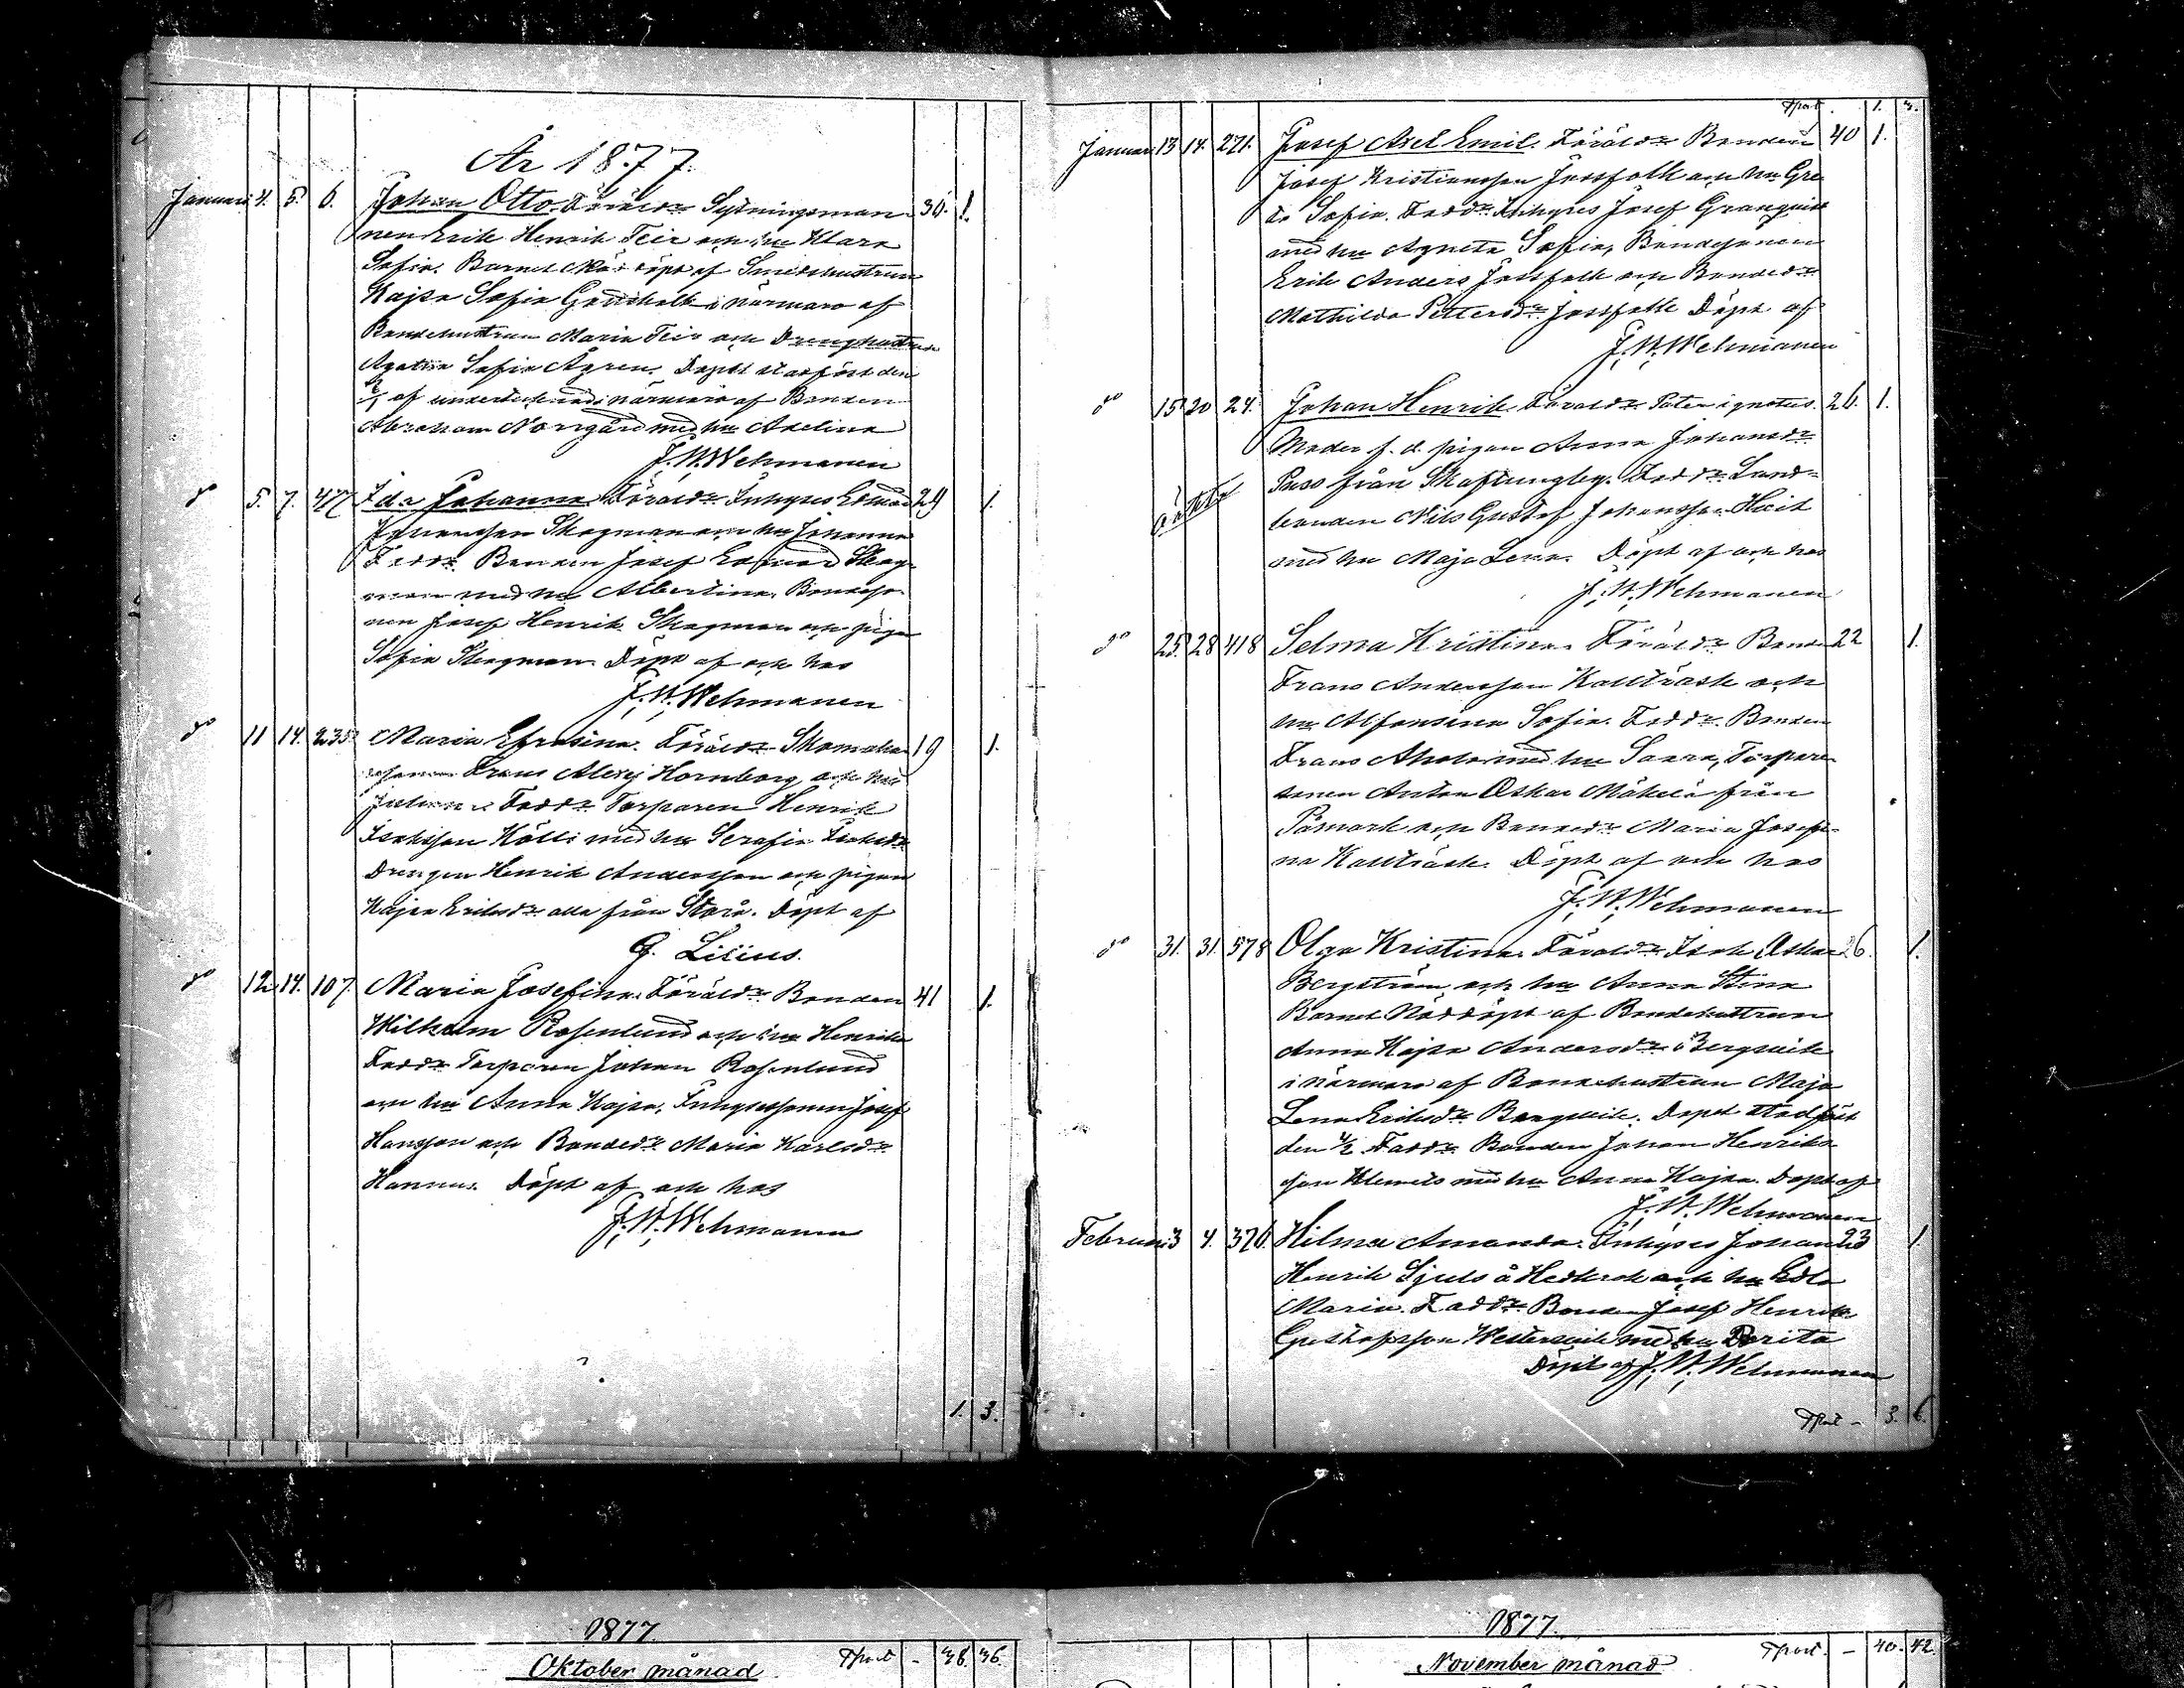 År 1877.
Januari 4. 5. 6. Johan Otto. Föräldr Sytningsman 36. 1.
nen Erik Henrik Teir och hu Klara
Sofia. Barnet Nöddöpt af Smedshustrun
Kajsa Sofia Grönholk i närmaro af
Bondehustrun Maria Teir och Drenghustrun
Sofia Ågren. Dopet stadfäst den
af undertecknad i närmaro af Bonden
Abraham Norrgård med hu Adelina
J. W. Wehmanen
do 5. 7. 47 Ida Johanna. Föräldr Inhyses Edvard 29 1.
Skogman och hu Johanna
Faddr Bonden Josef Edvard Skog
man med hu Albertina, Bondeso
nen Josef Henrik Skogman och pigan
Sofia Skogman. Döpt af och hos
J. W. Wehmanen
do 11 14. 235 Maria Efrosina. Föräldr Skomakar 19 1.
Frans Alexej Hornborg och hu
Faddr Torparen Henrik
Isaksson Kälti med hu Serafia
Drengen Henrik Andersson och pigan
Kajsa Eriksdr alla från Storå. Döpt af
G. Lilius.
do 12 14. 107. Maria Josefina. Föräldr Bonden 41 1.
Wilhelm Rosenlund och hu Henrika
Faddr Torparen Johan Rosenlund
och hu Anna Kajsa, Inhysessonen Josef
Hansson och Bondedr Maria Karlsdr
Hannus. Döpt af och hos
J. W. Wehmanen
1. 3.
Tport. 1. 3.
Januari 13 14. 271. Josef Axel Emil. Föräldr Bonden 40 1.
Josef Kristiansson Jossfolk och hu Gre
ta Sofia. Faddr Inhyses Josef Granqvist
med hu Agneta Sofia, Bondesonen
Erik Anders Jossfolk och Bondedr
Mathilda Pettersdr Jossfolk Döpt af
J. W. Wehmanen
do 15 20 24. Johan Henrik. Föräldr Pater ignotus. 26. 1.
Moder f. d. pigan Anna Johansdr
Puss från Skaftungby. Faddr Land=
bonden Nils Gustaf Johansson Heit
med hu Maja Lena. Döpt af och hos
J. W. Wehmanen
oäkta
do 25. 28 418 Selma Kristina. Föräldr Bonden 22 1.
Frans Andersson Kallträsk och
hu Alfonsina Sofia. Faddr Bonden
Frans Ahola med hu Saara, Torpare
sonen Anton Oskar Mäkelä från
Påmark och Bondedr Maria Josefi=
na Kallträsk. Döpt af och hos
J. W. Wehmanen
do 31. 31. 578 Olga Kristina. Föräldr Isak Oskar 26. 1.
Bergström och hu Anna Stina
Barnet Nöddöpt af Bondehustrun
Anna Kajsa Andersdr Bergvik
i närmaro af Bondehustrun Maja
Lena Eriksdr Bergvik. Dopet stadfäst
den 4/2. Faddr Bonden Johan Henriks
son Klemets med hu Anna Kajsa. Döpt af
J. W. Wehmanen
Februari 3 4. 326. Hilma Amanda. Inhyses Johan 23 1.
Henrik Sjuls å Hedkrok och hu Edla
Maria. Faddr Bonden Josef Henrik
Gustafsson Westervik med hu Dorita
Döpt af J. W. Wehmanen
Tport - 3. 6.
1877.
Oktober månad Tport - 38. 36.
1877.
November månad Tport. - 40. 42.